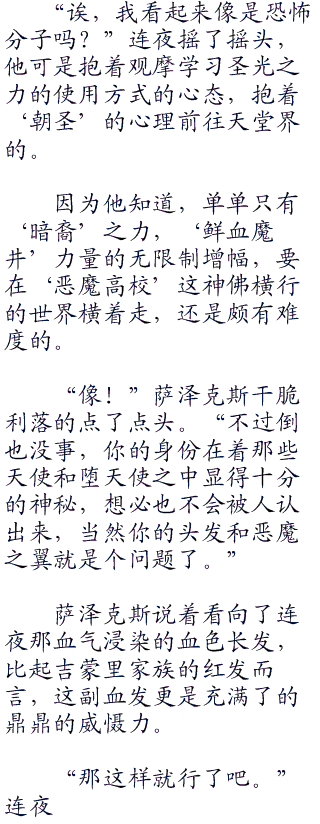 “诶，我看起来像是恐怖
分子吗？”连夜摇了摇头，
他可是抱着观摩学习圣光之
力的使用方式的心态，抱着
‘朝圣’的心理前往天堂界
的。
因为他知道，单单只有
‘暗裔’之力，‘鲜血魔
井’力量的无限制增幅，要
在‘恶魔高校’这神佛横行
的世界横着走，还是颇有难
度的。
“像！”萨泽克斯干脆
利落的点了点头。“不过倒
也没事，你的身份在着那些
天使和堕天使之中显得十分
的神秘，想必也不会被人认
出来，当然你的头发和恶魔
之翼就是个问题了。”
萨泽克斯说着看向了连
夜那血气浸染的血色长发，
比起吉蒙里家族的红发而
言，这副血发更是充满了的
鼎鼎的威慑力。
“那这样就行了吧。”
连夜